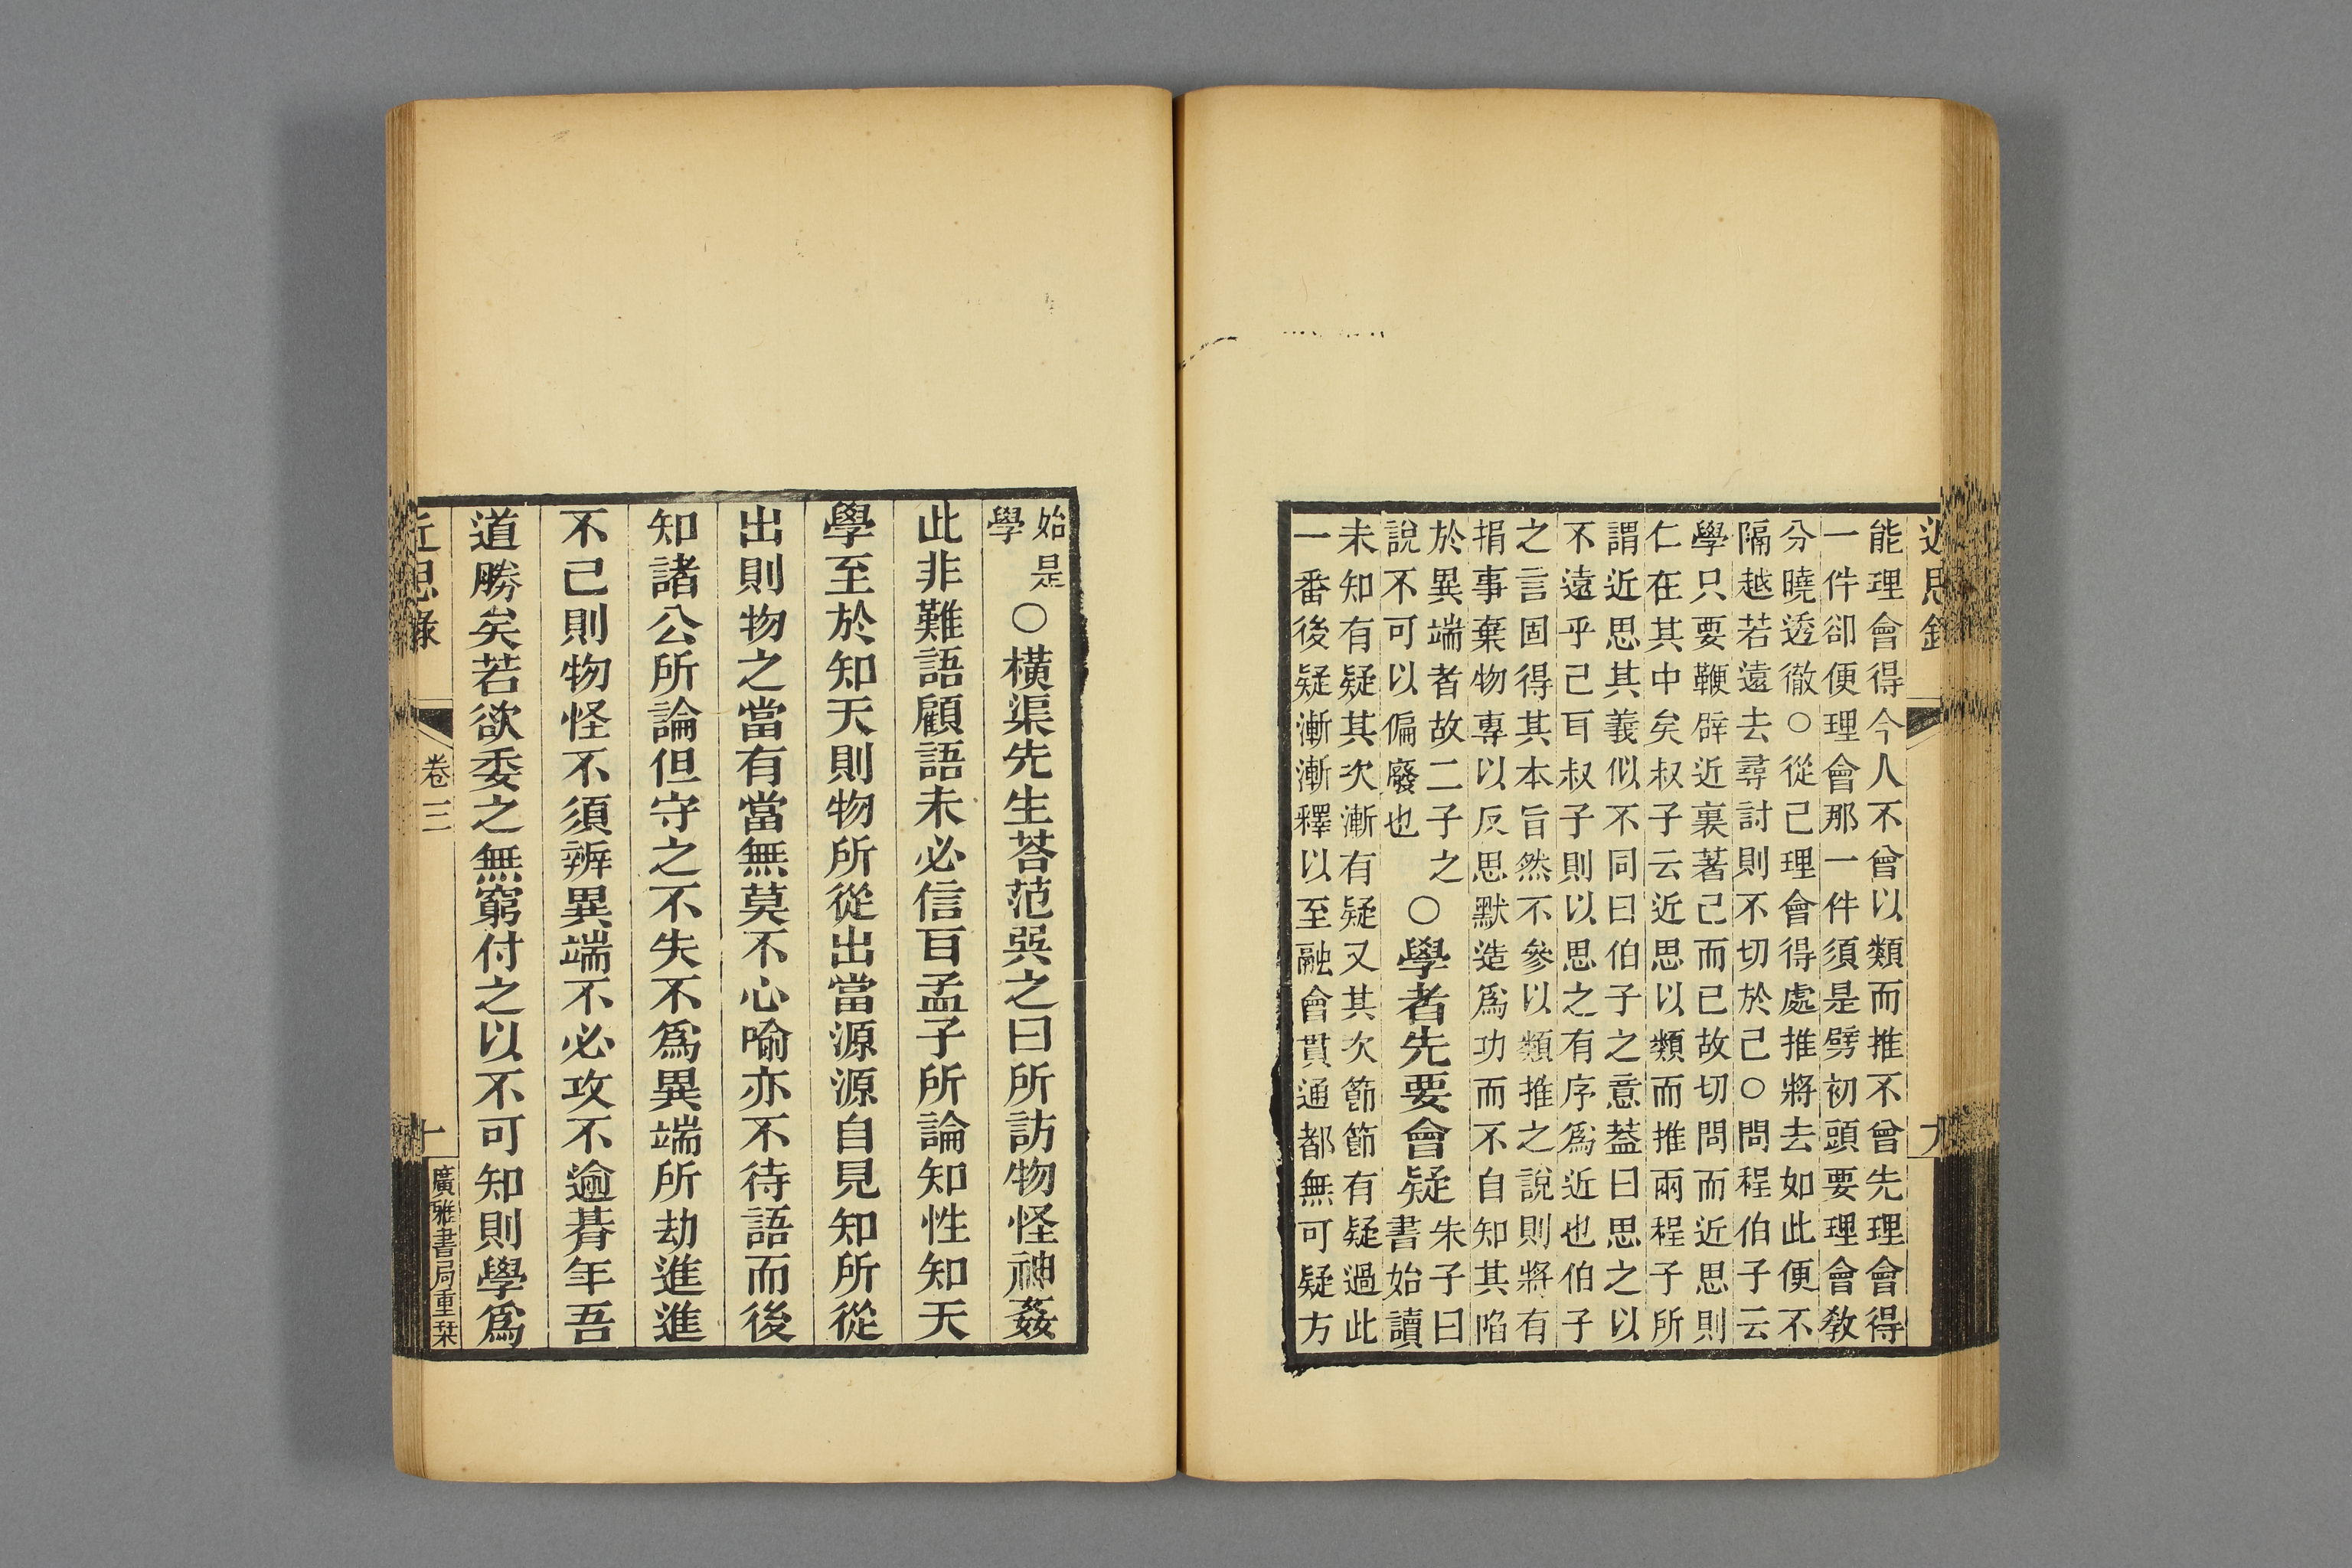 近思錄
九
能理會得今人不曾以類而推不曾先理會得
一件卻便理會那一件須是劈初頭要理會敎
分曉透徹○從己理會得處推將去如此便不
隔越若遠去尋討則不切於己○問程伯子云
學只要鞭辟近裏著己而已故切問而近思則
仁在其中矣叔子云近思以類而推兩程子所
謂近思其義似不同曰伯子之意葢曰思之以
不遠乎己耳叔子則以思之有序爲近也伯子
之言固得其本旨然不參以類推之說則將有
捐事棄物專以反思默造爲功而不自知其陷
於異端者故二子之
說不可以偏廢也
○學者先要會疑
朱子曰
書始讀
未知有疑其次漸有疑又其次節節有疑過此
一番後疑漸漸釋以至融會貫通都無可疑方
始是
學
○橫渠先生荅范巽之曰所訪物怪神姦
此非難語顧語未必信耳孟子所論知性知天
學至於知天則物所從出當源源自見知所從
出則物之當有當無莫不心喻亦不待語而後
知諸公所論但守之不失不爲異端所劫進進
不已則物怪不須辨異端不必攻不逾朞年吾
道勝矣若欲委之無窮付之以不可知則學爲
近思錄
卷三
十
廣雅書局重栞